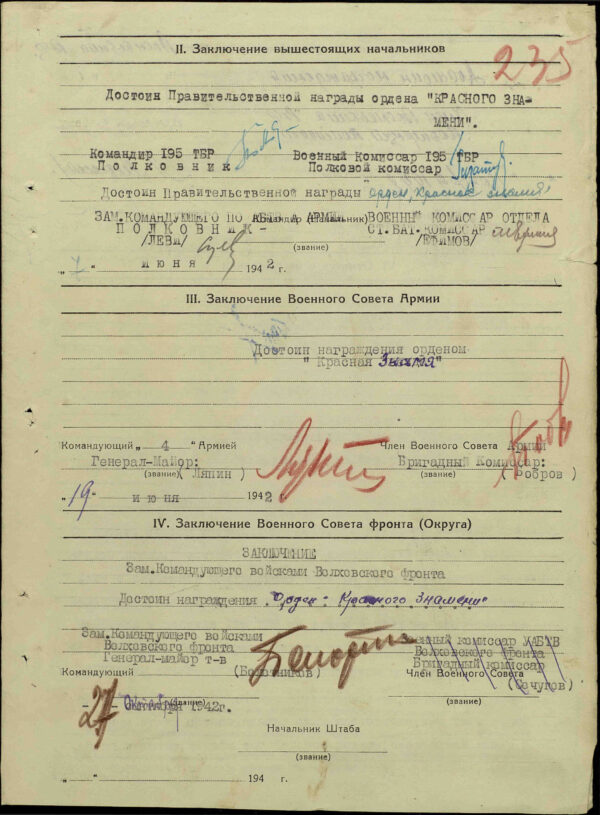 235
II. Заключение вышестоящих начальников
Достоин Правительственной награды ордена "КРАСНОГО ЗНА-
МЕНИ".
Командир 195 ТБР Военный Комиссар 195 ТБР
Полковник Полковой комиссар
Достоин Правительственной награды Орден, Красное знамя,
ЗАМ.КОМАНДУЮЩЕГО ПО АБТВ 4 АРМИИ Командир (Начальник) ВОЕННЫЙ КОМИССАР ОТДЕЛА
ПОЛКОВНИК- СТ.БАТ.КОМИССАР
/ЛЕВИ/ (звание) /ЕФИМОВ/
„7" июня 1942 г.
III. Заключение Военного Совета Армии
Достоин награждения орденом
"Красная Знамя"
Командующий „ 4 " Армией Член Военного Совета Армии
Генерал-Майор: Бригадный Комиссар:
(звание) (Ляпин) (звание)
„19" июня 1942 г.
IV. Заключение Военного Совета фронта (Округа)
ЗАКЛЮЧЕНИЕ
Зам.Командующего войсками Волховского фронта
Достоин награждения "Орден: Красного Знамени"
Зам.Командующего войсками Военный комиссар УАБТВ
Волховского фронта Волховского фронта
Генерал-майор т-в Бригадный комиссар
Командующий (Болотников) Член Военного Совета
(звание) (звание)
27 1942г.
Начальник Штаба
(звание)
„ " 194 г.